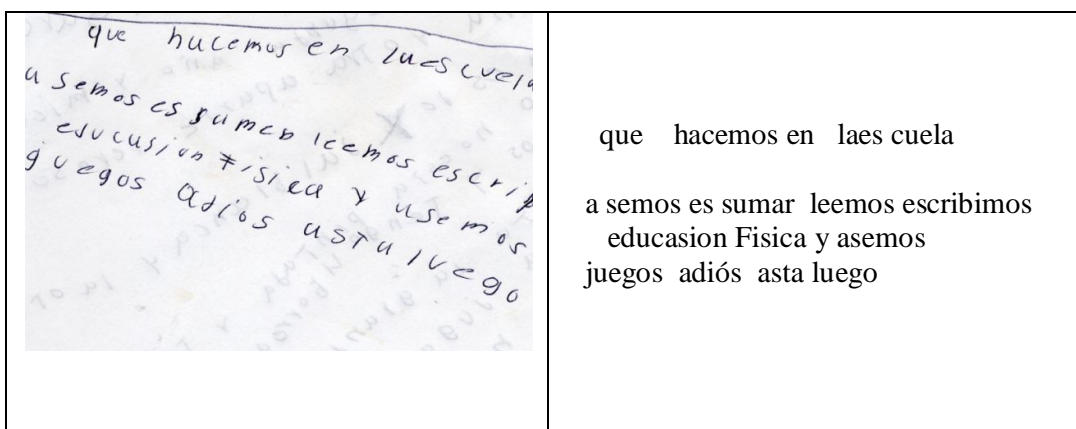 que hacemos en laescuela
a semos es sumen leemos escrib
educasion Fisica y asemos
juegos adios asta luego
que hacemos en laes cuela
a semos es sumar leemos escribimos
educasion Fisica y asemos
juegos adiós asta luego